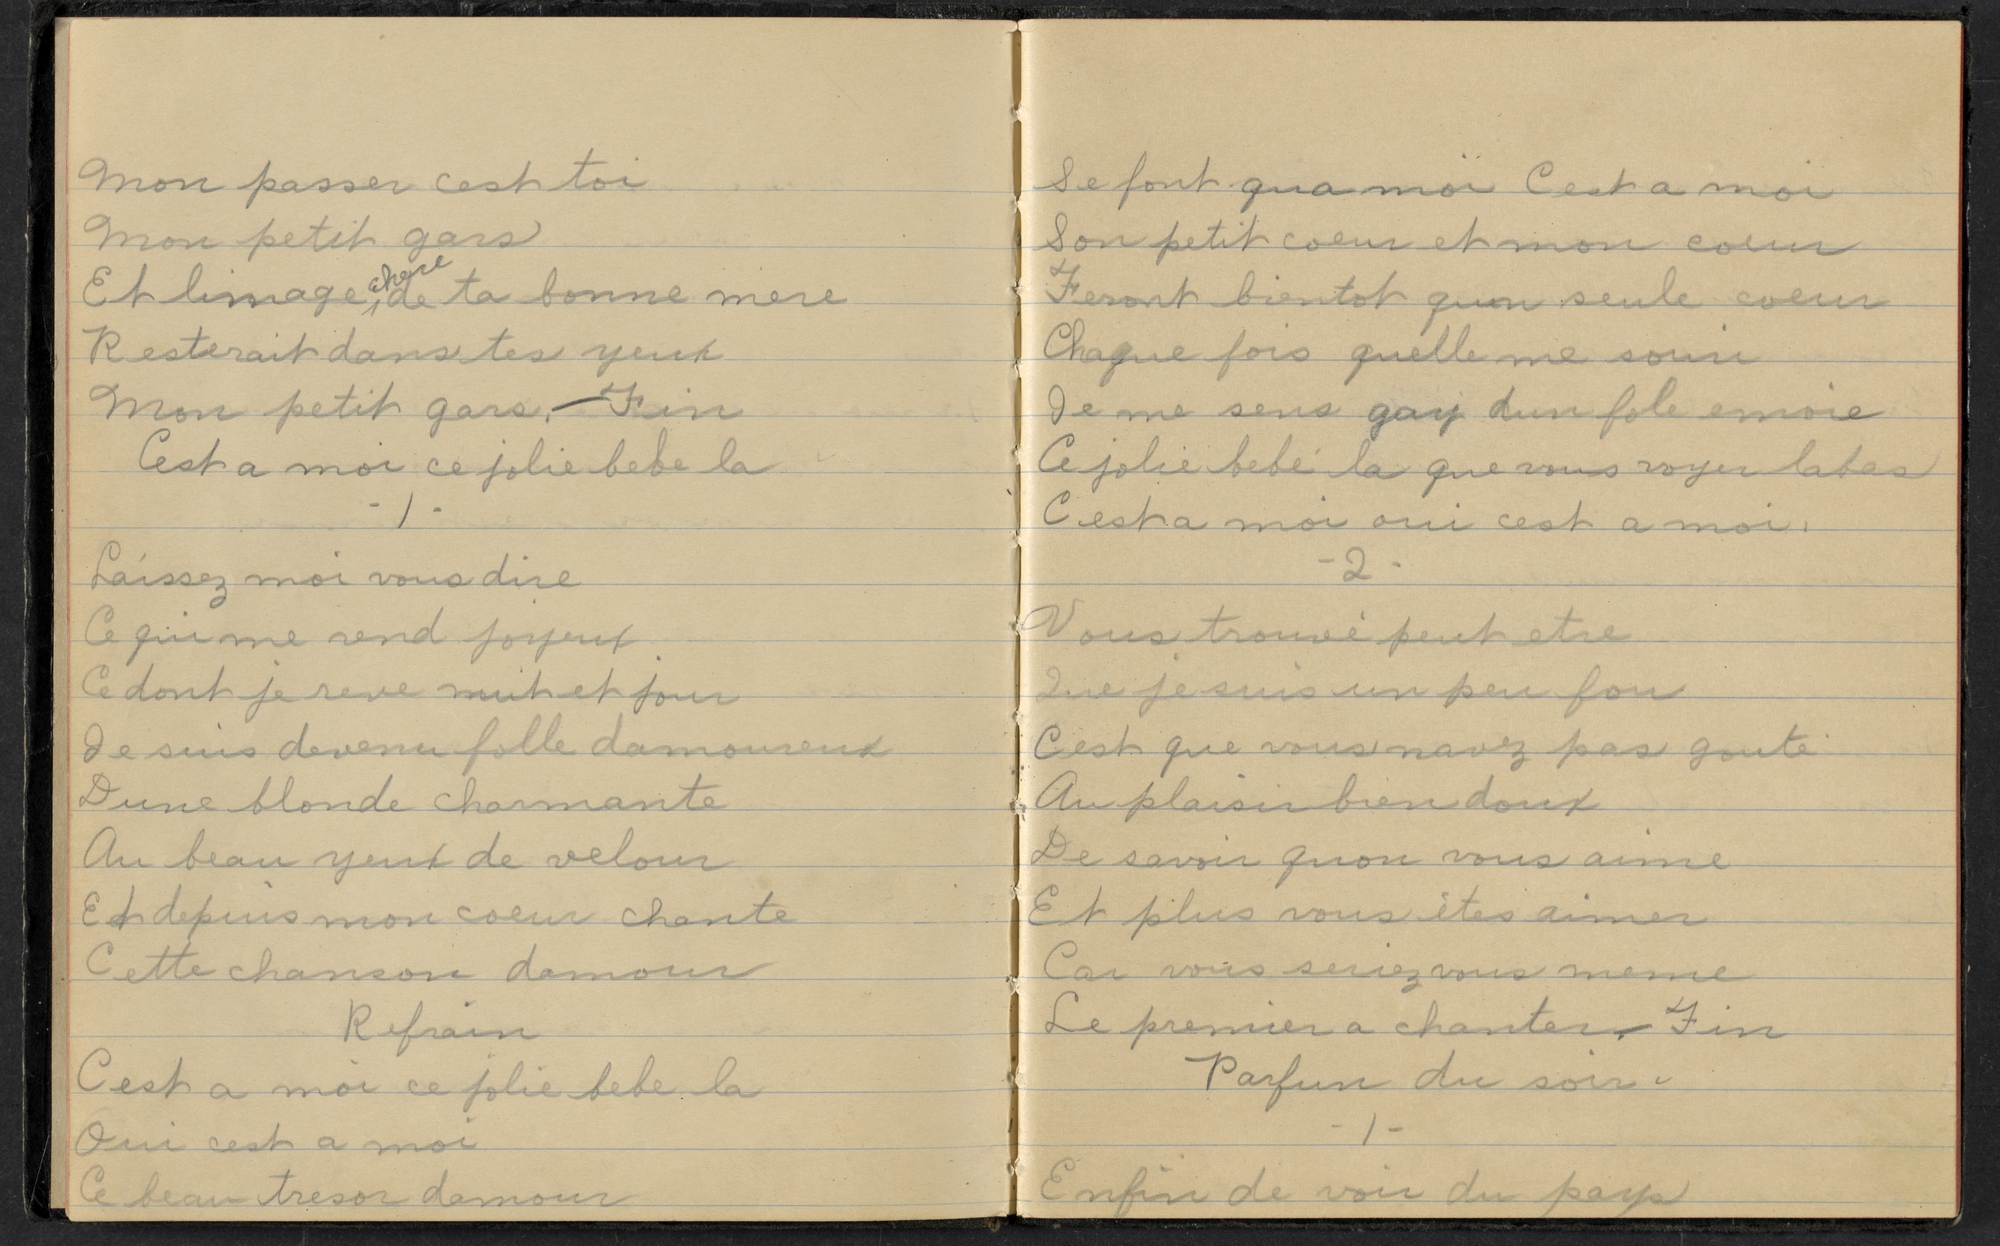 Mon passer cest toi
Mon petit gars
Et limage chere de ta bonne mere
Resterait dans tes yeux
Mon petit gars. — Fin
Cest a moi ce jolie bebe la
- 1 -
Laissez moi vous dire
Ce qui me rend joyeux
Ce dont je reve nuit et jour
Je suis devenu folle damoureux
Dune blonde charmante
Au beau yeux de velour
Et depuis mon coeur chante
Cette chanson damour
Refrain
Cest a moi ce jolie bebe la
Oui cest a moi
Ce beau tresor damour
Se font qua moi Cest a moi
Son petit coeur et mon coeur
Feront bientot quun seule coeur
Chaque fois quelle me souri
Je me sens gay dun fole emoie
Ce jolie bebé la que vous voyer labas
Cest a moi oui cest a moi.
- 2 -
Vous trouvé peut etre
Que je suis un peu fou
Cest que vous navez pas gouté
Au plaisir bien doux
De savoir quon vous aime
Et plus vous êtes aimer
Car vous seriez vous meme
Le premier a chanter. — Fin
Parfun du soir.
- 1 -
Enfin de voir du pays